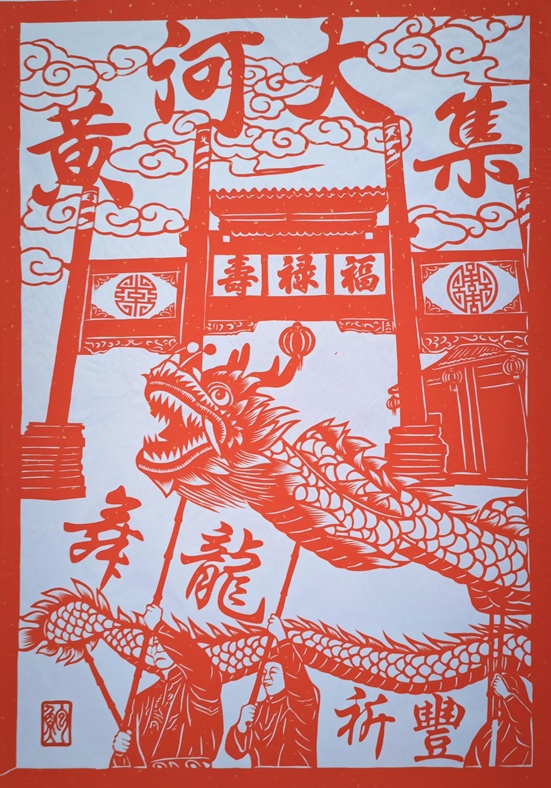 黄河大集
福禄壽
舞龍
祈豐